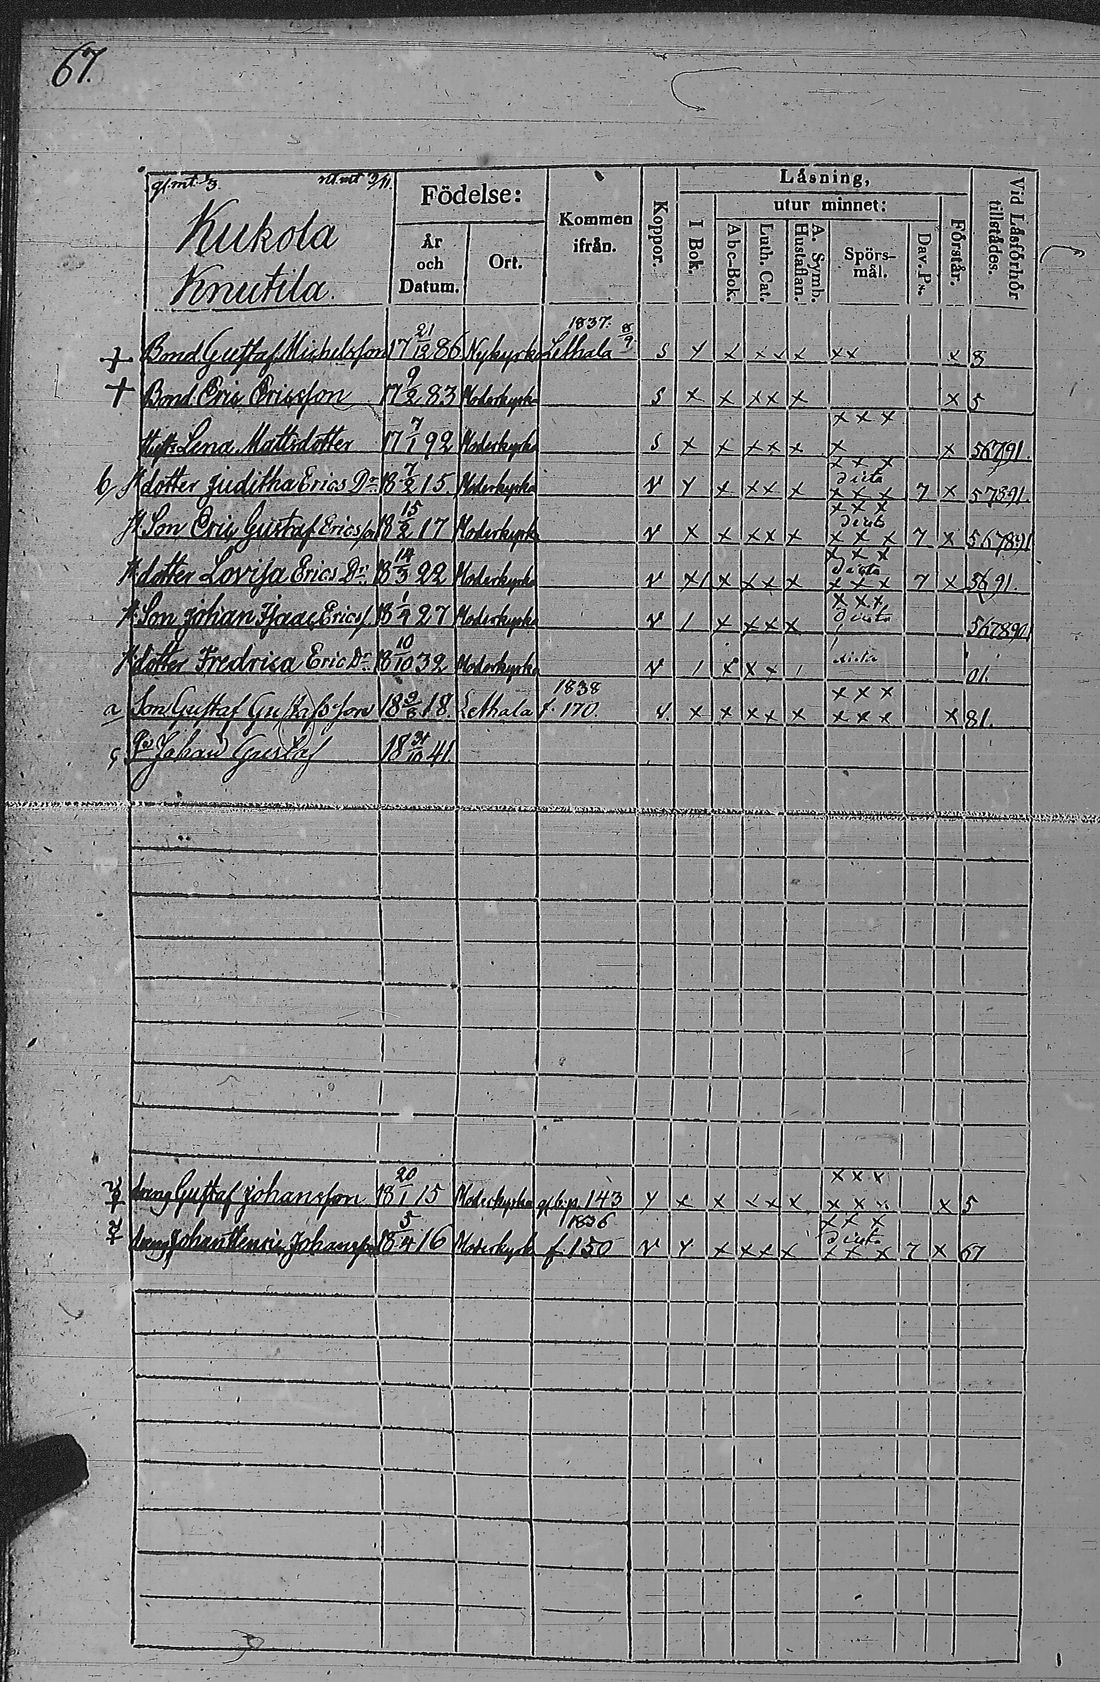 67.
Kukola
Knutila.
Födelse:
År och Datum.
Ort.
Kommen ifrån.
Koppor.
Läsning,
I Bok.
utur minnet:
Abc-Bok.
Luth. Cat.
A. Symb. Hustaflan.
Spörs-mål.
Dav. Ps.
Förstår.
Vid Läsförhör tillstädes.
+ Bond Gustaf Michelsson 17 21/12 86 Nykyrko 1837. Lethala 8/9 s x x x x x x x x 8
+ Bond Eric Ericsson 17 9/2 83 Moderkyrk s x x x x x x 5
Lena Mattsdotter 17 7/1 92 Moderkyrka s x x x x x x x x x x 56791.
b dotter Juditha Erics Dr 18 7/2 15 Moderkyrka v x x x x x x x x dicta x x x 7 x 57891
Son Eric Gustaf Ericss 18 15/2 17 Moderkyrka v x x x x x x x x dicta x x x 7 x 567891
dotter Lovisa Erics Dr 18 14/3 22 Moderkyrka v x x x x x x x x dicta x x x 7 x 5691.
Son Johan Isaac Erics 18 1/4 27 Moderkyrka v 1 x x x x x x x dicta
dotter Fredrica Eric Dr 18 10/10 32 Moderkyrka v 1 x x x 1 dicta 01.
a Son Gustaf Gustafsson 18 18. Lethala 1838 f. 170. v x x x x x x x x x x x x 81.
Johan Gustaf 18 31/10 41.
dräng Gustaf Johansson 18 20/1 15 Moderkyrka gl. b. p. 143 x x x x x x x x x x x x 5
dräng Johan Henric Johansson 18 5/4 16 Moderkyrk 1836 f 150 v x x x x x x x x dicta x x x 7 x 67